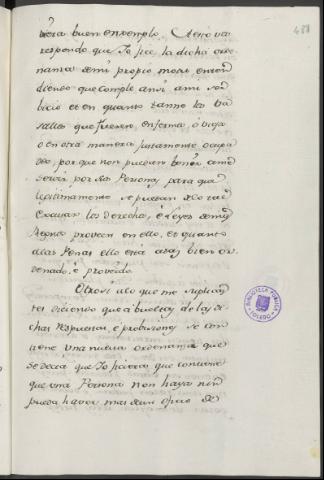 buen enxemplo. A esto vos
respondo que Yo fice la dicha orde
nanza de mi propio motu, enten
diendo que cumple ansi a mi ser
bicio et en quanto tanne los ba
sallos que fueren enfermos, o viejos
o en otra manera justamente ocupa
dos, por que non puedan benir a me
servir por sus Personas, para que
legitimamente se puedan
Escusar los derechos, e Leyes de mis
Regnos proveen en ello, et quanto
a las Penas ello está asaz bien or
denado, e proveido.
Otrosi a lo que me suplicas
tes diciendo que a bueltas de las di
chas respuestas, e probisiones se con
tiene una nueva ordenanza que
se decia que Yo ficiera que contiene
que una Persona non haya nin
pueda haver mas de un oficio de
BIBLIOTECA PUBLICA
TOLEDO